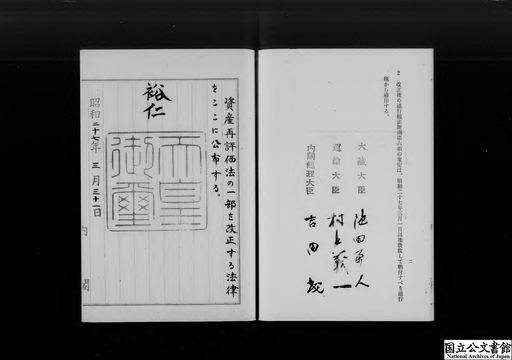 2　改正後の通行税法第六条の規定は、昭和二十七年三月一日以後領収して納付すべき通行
税から適用する。
大蔵大臣　池田勇人
運輸大臣　村上義一
内閣総理大臣　吉田茂
二
資産再評価法の一部を改正する法律
をここに公布する。
裕仁
天皇
御璽
昭和二十七年三月三十一日
内閣
国立公文書館
National Archives of Japan